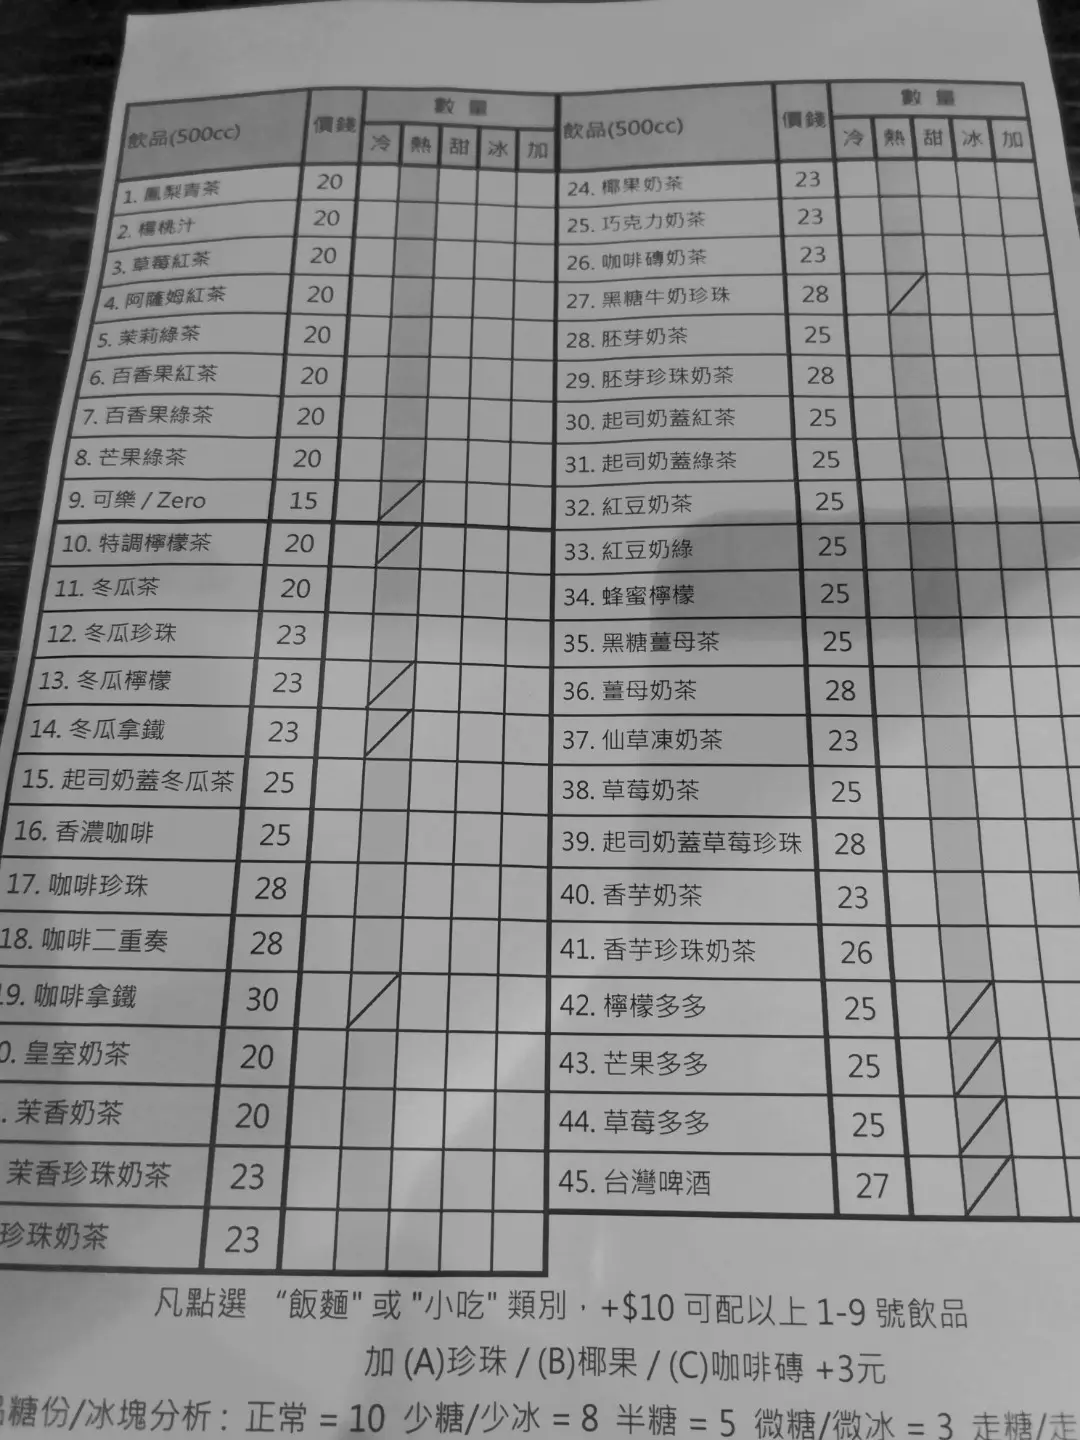 飲品(500cc) 價錢 數量
冷 熱 甜 冰 加
1. 鳳梨青茶 20
2. 楊桃汁 20
3. 草莓紅茶 20
4. 阿薩姆紅茶 20
5. 茉莉綠茶 20
6. 百香果紅茶 20
7. 百香果綠茶 20
8. 芒果綠茶 20
9. 可樂 / Zero 15
10. 特調檸檬茶 20
11. 冬瓜茶 20
12. 冬瓜珍珠 23
13. 冬瓜檸檬 23
14. 冬瓜拿鐵 23
15. 起司奶蓋冬瓜茶 25
16. 香濃咖啡 25
17. 咖啡珍珠 28
18. 咖啡二重奏 28
19. 咖啡拿鐵 30
0. 皇室奶茶 20
. 茉香奶茶 20
茉香珍珠奶茶 23
珍珠奶茶 23
飲品(500cc) 價錢 數量
冷 熱 甜 冰 加
24. 椰果奶茶 23
25. 巧克力奶茶 23
26. 咖啡磚奶茶 23
27. 黑糖牛奶珍珠 28
28. 胚芽奶茶 25
29. 胚芽珍珠奶茶 28
30. 起司奶蓋紅茶 25
31. 起司奶蓋綠茶 25
32. 紅豆奶茶 25
33. 紅豆奶綠 25
34. 蜂蜜檸檬 25
35. 黑糖薑母茶 25
36. 薑母奶茶 28
37. 仙草凍奶茶 23
38. 草莓奶茶 25
39. 起司奶蓋草莓珍珠 28
40. 香芋奶茶 23
41. 香芋珍珠奶茶 26
42. 檸檬多多 25
43. 芒果多多 25
44. 草莓多多 25
45. 台灣啤酒 27
凡點選 “飯麵" 或 "小吃" 類別，+$10 可配以上 1-9 號飲品
加 (A)珍珠 / (B)椰果 / (C)咖啡磚 +3元
糖份/冰塊分析：正常 = 10 少糖/少冰 = 8 半糖 = 5 微糖/微冰 = 3 走糖/走